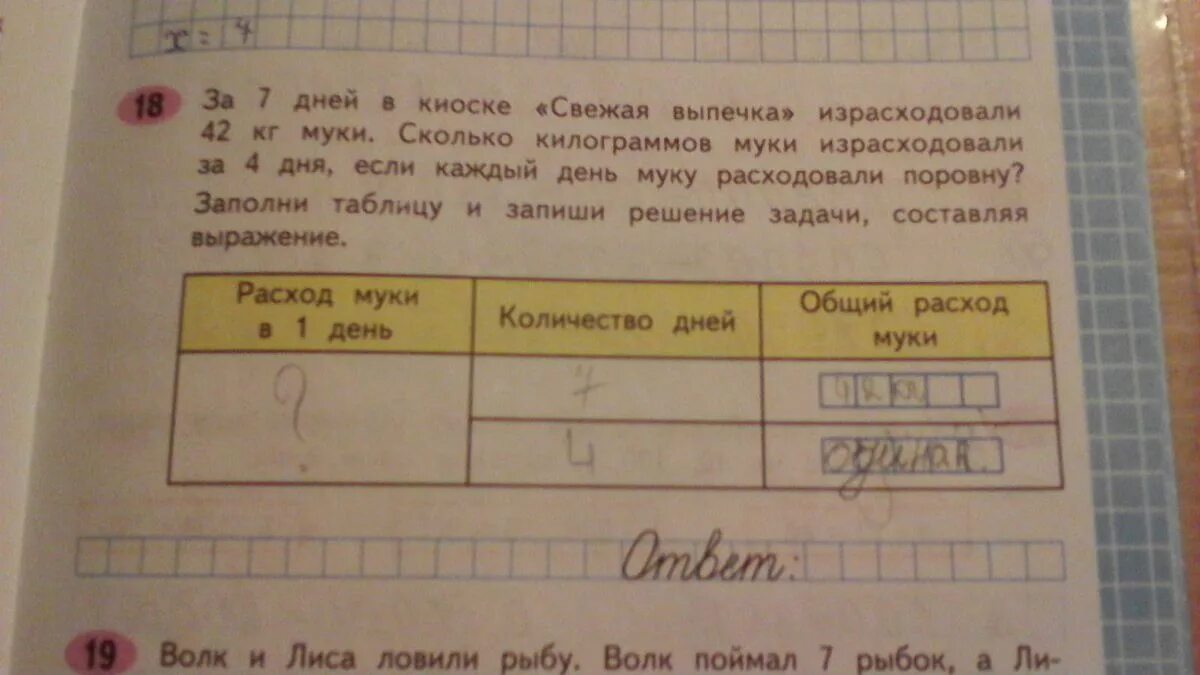 х = 7
18 За 7 дней в киоске «Свежая выпечка» израсходовали
42 кг муки. Сколько килограммов муки израсходовали
за 4 дня, если каждый день муку расходовали поровну?
Заполни таблицу и запиши решение задачи, составляя
выражение.
Расход муки
в 1 день
Количество дней
Общий расход
муки
?
7
42 кг
4
одинак.
Ответ:
19 Волк и Лиса ловили рыбу. Волк поймал 7 рыбок, а Ли-